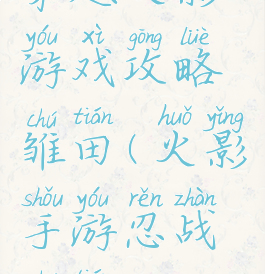 yóu xì gōng lüè
游戏攻略
chú tián huǒ yǐng
雏田(火影
shǒu yóu rěn zhàn
手游忍战